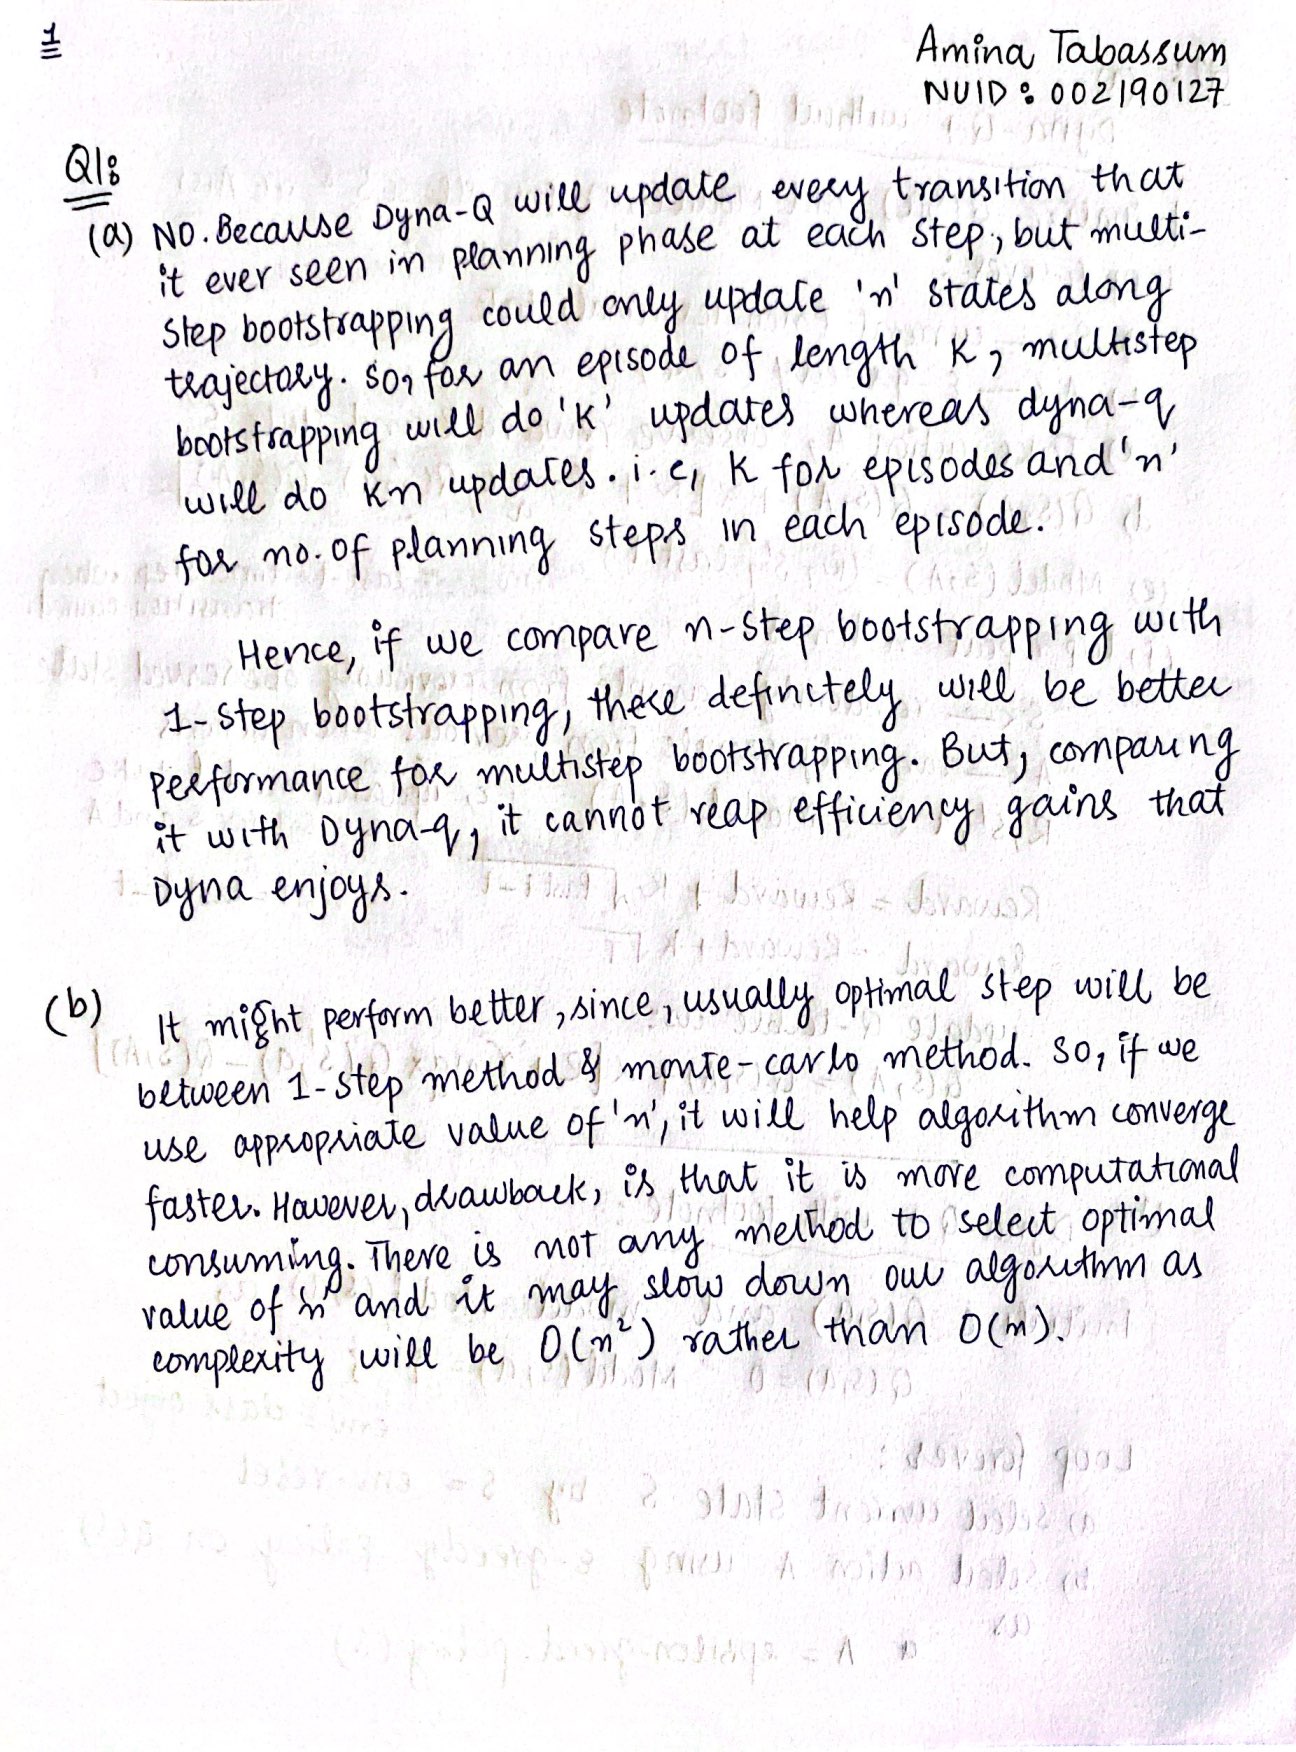 1
Amina Tabassum
NUID: 002190127
Q1:
(a) NO. Because Dyna-Q will update every transition that
it ever seen in planning phase at each step, but multi-
step bootstrapping could only update 'n' states along
trajectory. So, for an episode of length K, multistep
bootstrapping will do 'K' updates whereas dyna-q
will do Kn updates. i.e, K for episodes and 'n'
for no. of planning steps in each episode.
Hence, if we compare n-step bootstrapping with
1-step bootstrapping, there definitely will be better
performance for multistep bootstrapping. But, comparing
it with Dyna-q, it cannot reap efficiency gains that
Dyna enjoys.
(b) It might perform better, since, usually optimal step will be
between 1-step method & monte-carlo method. So, if we
use appropriate value of 'n', it will help algorithm converge
faster. However, drawback, is that it is more computational
consuming. There is not any method to select optimal
value of 'n' and it may slow down our algorithm as
complexity will be O(n²) rather than O(n).